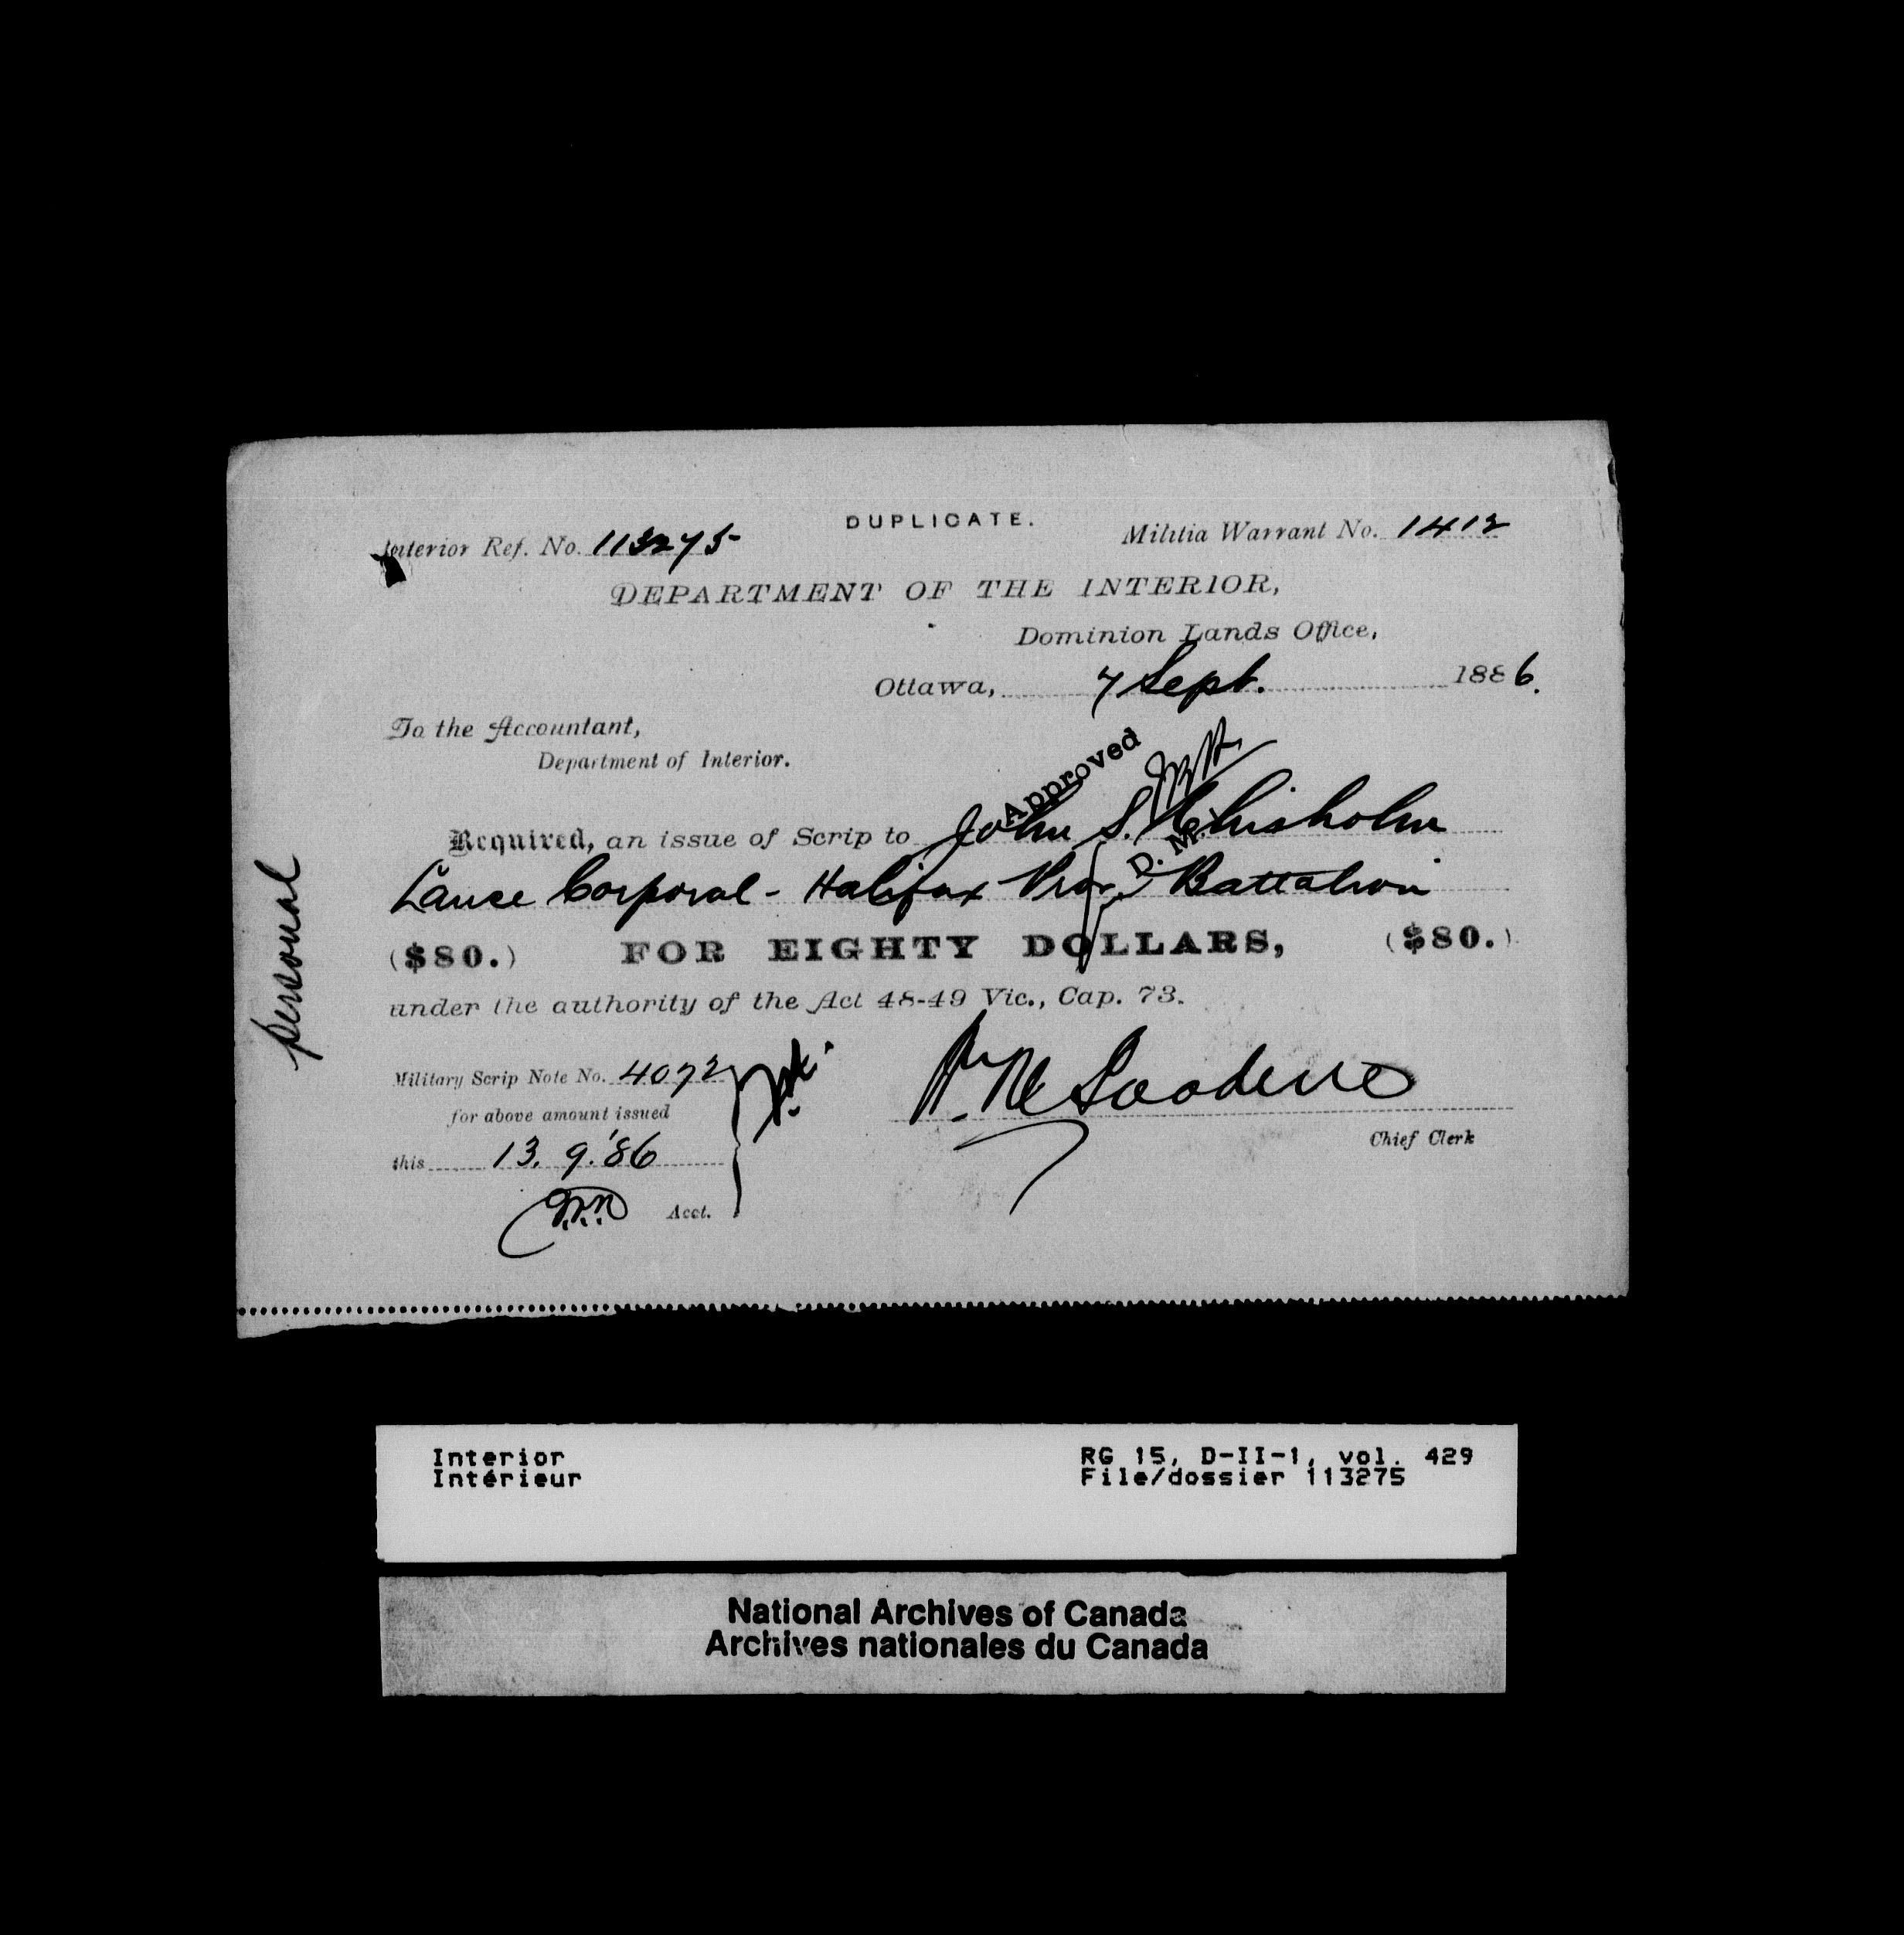 DUPLICATE.
Interior Ref. No. 113275
Militia Warrant No. 1412
DEPARTMENT OF THE INTERIOR,
Dominion Lands Office,
Ottawa, 7 Sept. 1886.
To the Accountant,
Department of Interior.
Approved
Required, an issue of Scrip to John S. Chisholm
D. M.
Lance Corporal - Halifax Prov. Battalion
($80.) FOR EIGHTY DOLLARS, ($80.)
under the authority of the Act 48-49 Vic., Cap. 73.
personal
Military Scrip Note No. 4072
for above amount issued
this 13. 9. '86
Acct.
Chief Clerk
Interior
Intérieur
RG 15, D-II-1, vol. 429
File/dossier 113275
National Archives of Canada
Archives nationales du Canada